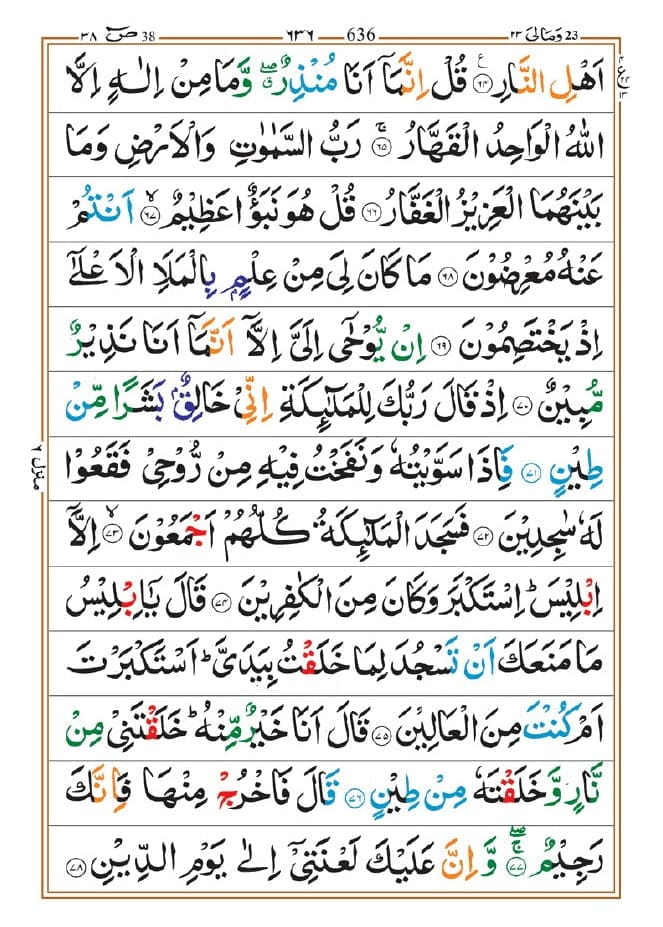 ٣٨ صٓ 38 ٦٣٦ 636 ٢٣ وَمَالِیَ 23
اَهْلِ النَّارِ ﴿٦٤﴾ قُلْ اِنَّمَاۤ اَنَا مُنْذِرٌ ۖۗ وَّمَا مِنْ اِلٰهٍ اِلَّا
اللّٰهُ الْوَاحِدُ الْقَهَّارُ ﴿٦٥﴾ۚ رَبُّ السَّمٰوٰتِ وَالْاَرْضِ وَمَا
بَیْنَهُمَا الْعَزِیْزُ الْغَفَّارُ ﴿٦٦﴾ قُلْ هُوَ نَبَؤٌا عَظِیْمٌ ﴿٦٧﴾ۙ اَنْتُمْ
عَنْهُ مُعْرِضُوْنَ ﴿٦٨﴾ مَا كَانَ لِیَ مِنْ عِلْمٍۭ بِالْمَلَاِ الْاَعْلٰۤی
اِذْ یَخْتَصِمُوْنَ ﴿٦٩﴾ اِنْ یُّوْحٰۤی اِلَیَّ اِلَّاۤ اَنَّمَاۤ اَنَا نَذِیْرٌ
مُّبِیْنٌ ﴿٧٠﴾ اِذْ قَالَ رَبُّكَ لِلْمَلٰٓىِٕكَةِ اِنِّیْ خَالِقٌۢ بَشَرًا مِّنْ
طِیْنٍ ﴿٧١﴾ فَاِذَا سَوَّیْتُهٗ وَنَفَخْتُ فِیْهِ مِنْ رُّوْحِیْ فَقَعُوْا
لَهٗ سٰجِدِیْنَ ﴿٧٢﴾ فَسَجَدَ الْمَلٰٓىِٕكَةُ كُلُّهُمْ اَجْمَعُوْنَ ﴿٧٣﴾ۙ اِلَّاۤ
اِبْلِیْسَ ؕ اِسْتَكْبَرَ وَكَانَ مِنَ الْكٰفِرِیْنَ ﴿٧٤﴾ قَالَ یٰۤاِبْلِیْسُ
مَا مَنَعَكَ اَنْ تَسْجُدَ لِمَا خَلَقْتُ بِیَدَیَّ ؕ اَسْتَكْبَرْتَ
اَمْ كُنْتَ مِنَ الْعَالِیْنَ ﴿٧٥﴾ قَالَ اَنَا خَیْرٌ مِّنْهُ ؕ خَلَقْتَنِیْ مِنْ
نَّارٍ وَّخَلَقْتَهٗ مِنْ طِیْنٍ ﴿٧٦﴾ قَالَ فَاخْرُجْ مِنْهَا فَاِنَّكَ
رَجِیْمٌ ﴿٧٧﴾ۚۖ وَّاِنَّ عَلَیْكَ لَعْنَتِیْۤ اِلٰی یَوْمِ الدِّیْنِ ﴿٧٨﴾
منزل ٦